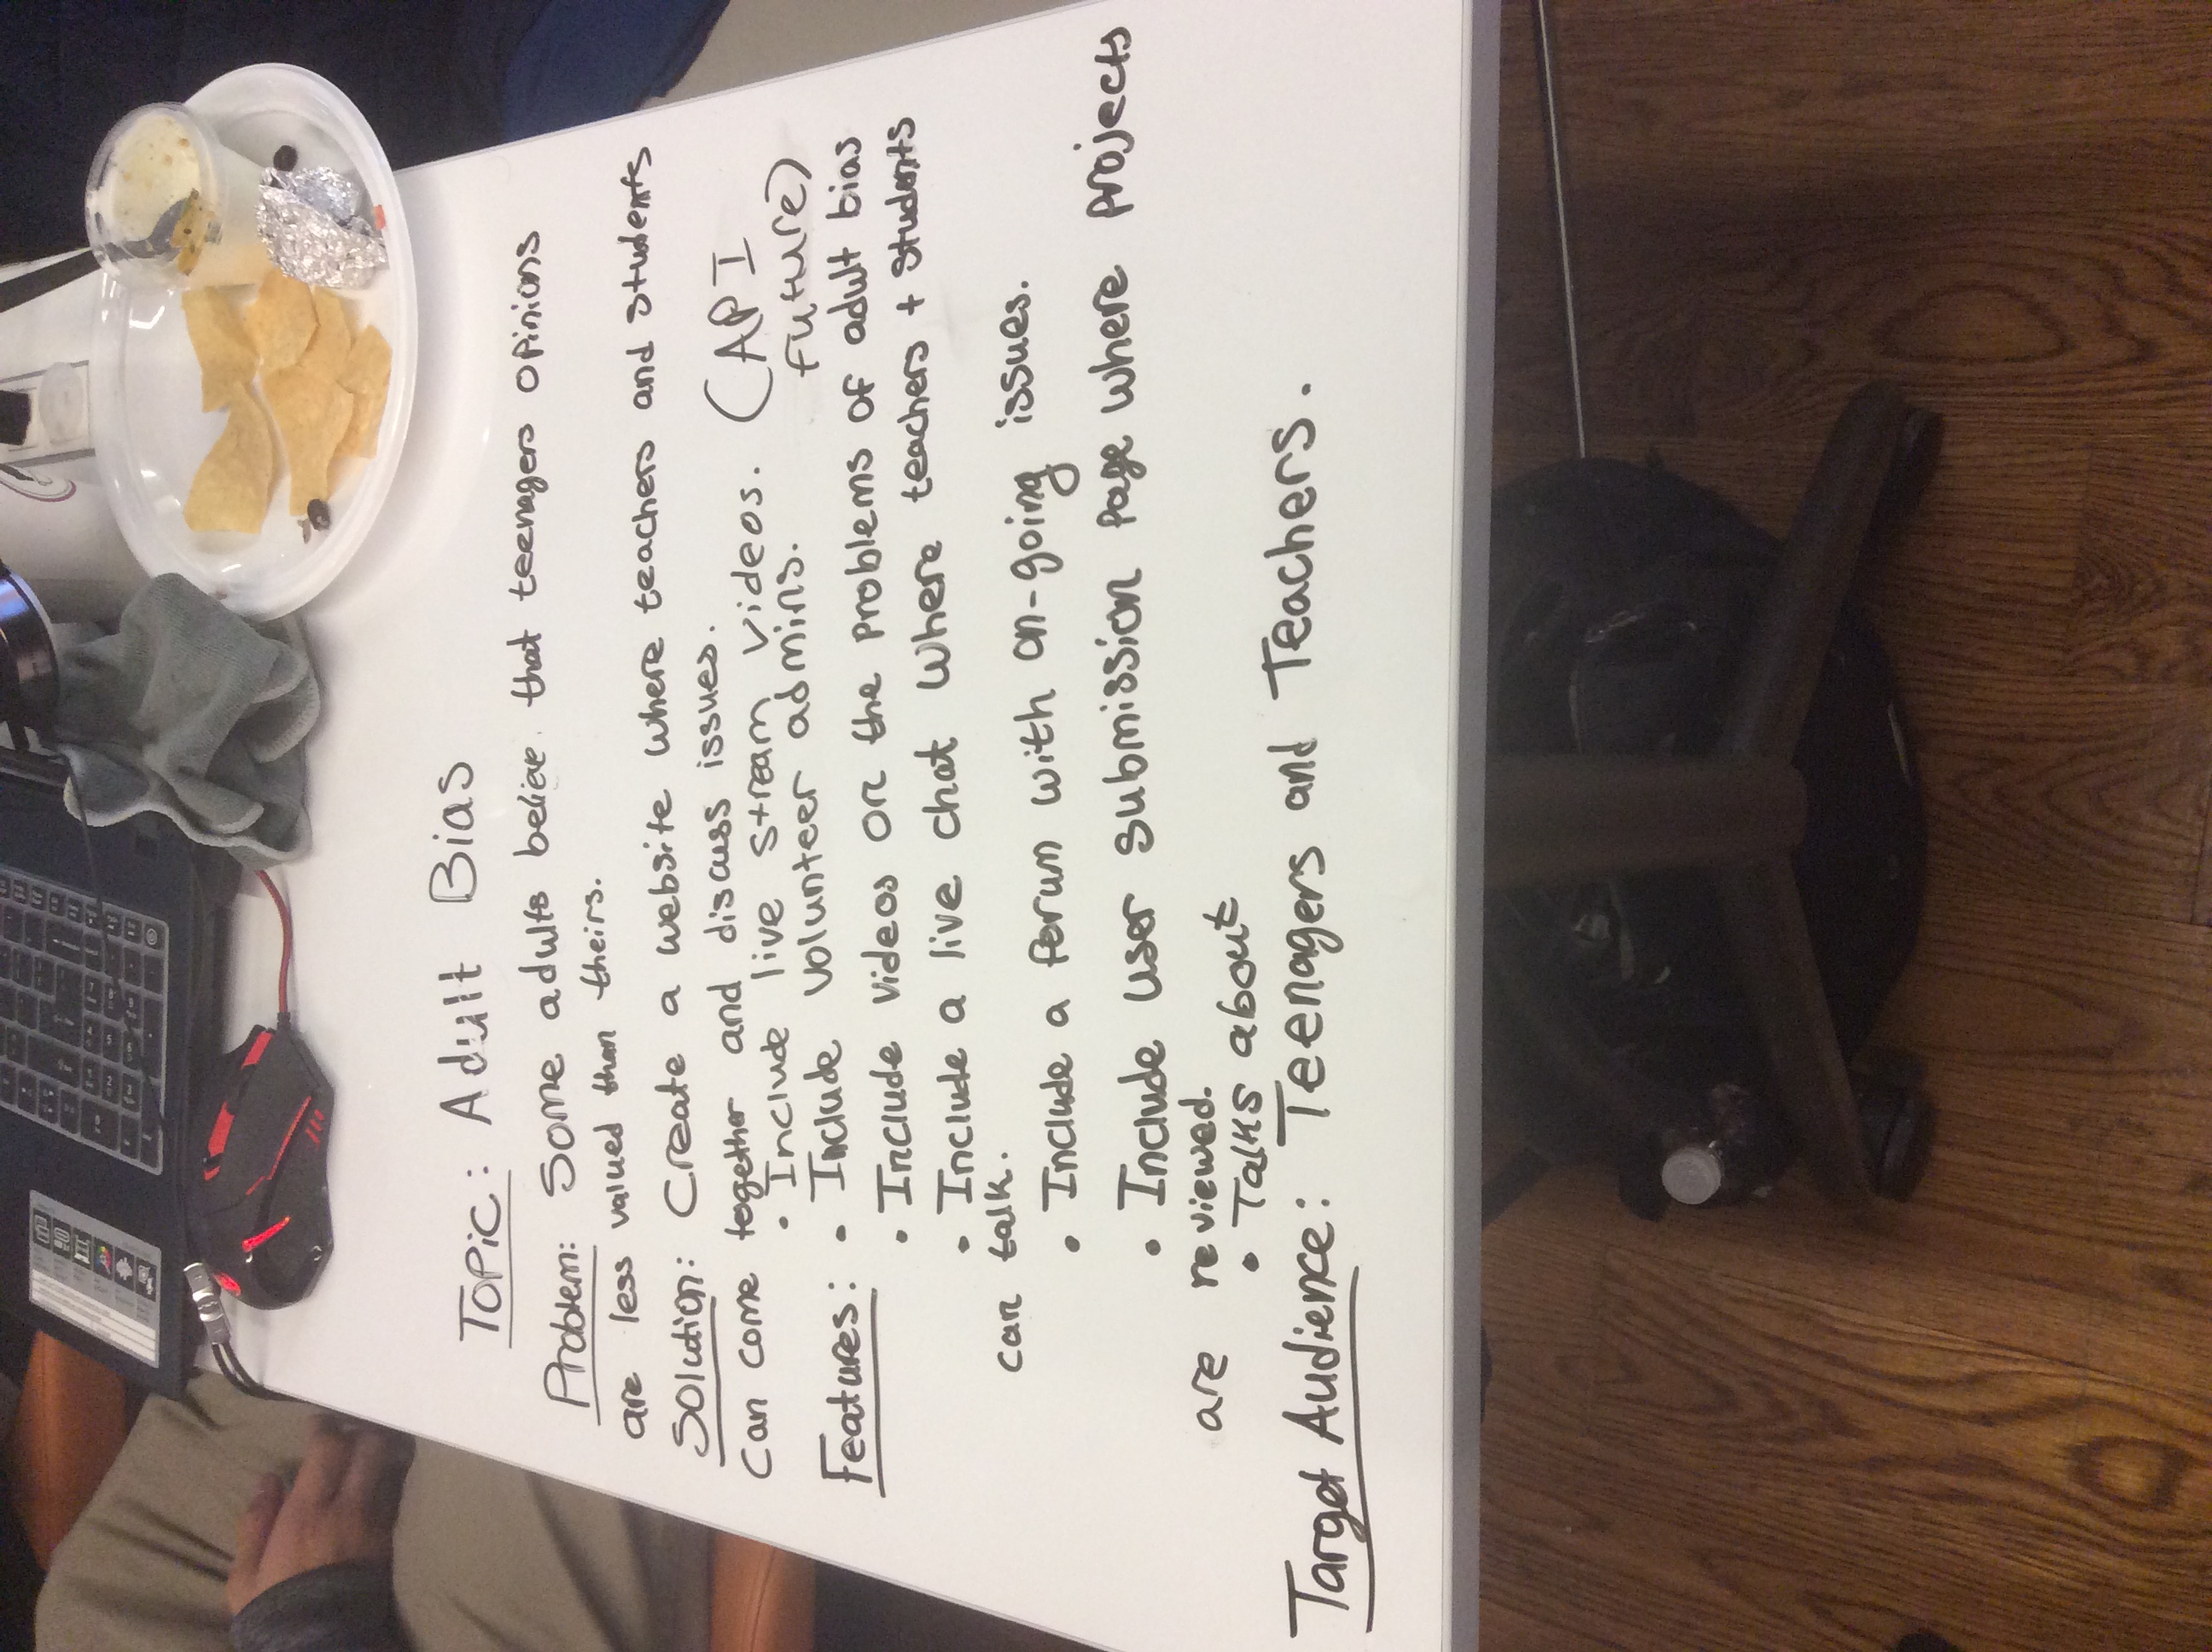 Topic: Adult Bias
Problem: Some adults believe that teenagers opinions
are less valued than theirs.
Solution: Create a website where teachers and students
can come together and discuss issues.
• Include live stream videos. (API
future)
Features: • Include volunteer admins.
• Include videos on the problems of adult bias
• Include a live chat where teachers + students
can talk.
• Include a forum with on-going issues.
• Include user submission page where projects
are reviewed.
• Talks about
Target Audience: Teenagers and Teachers.